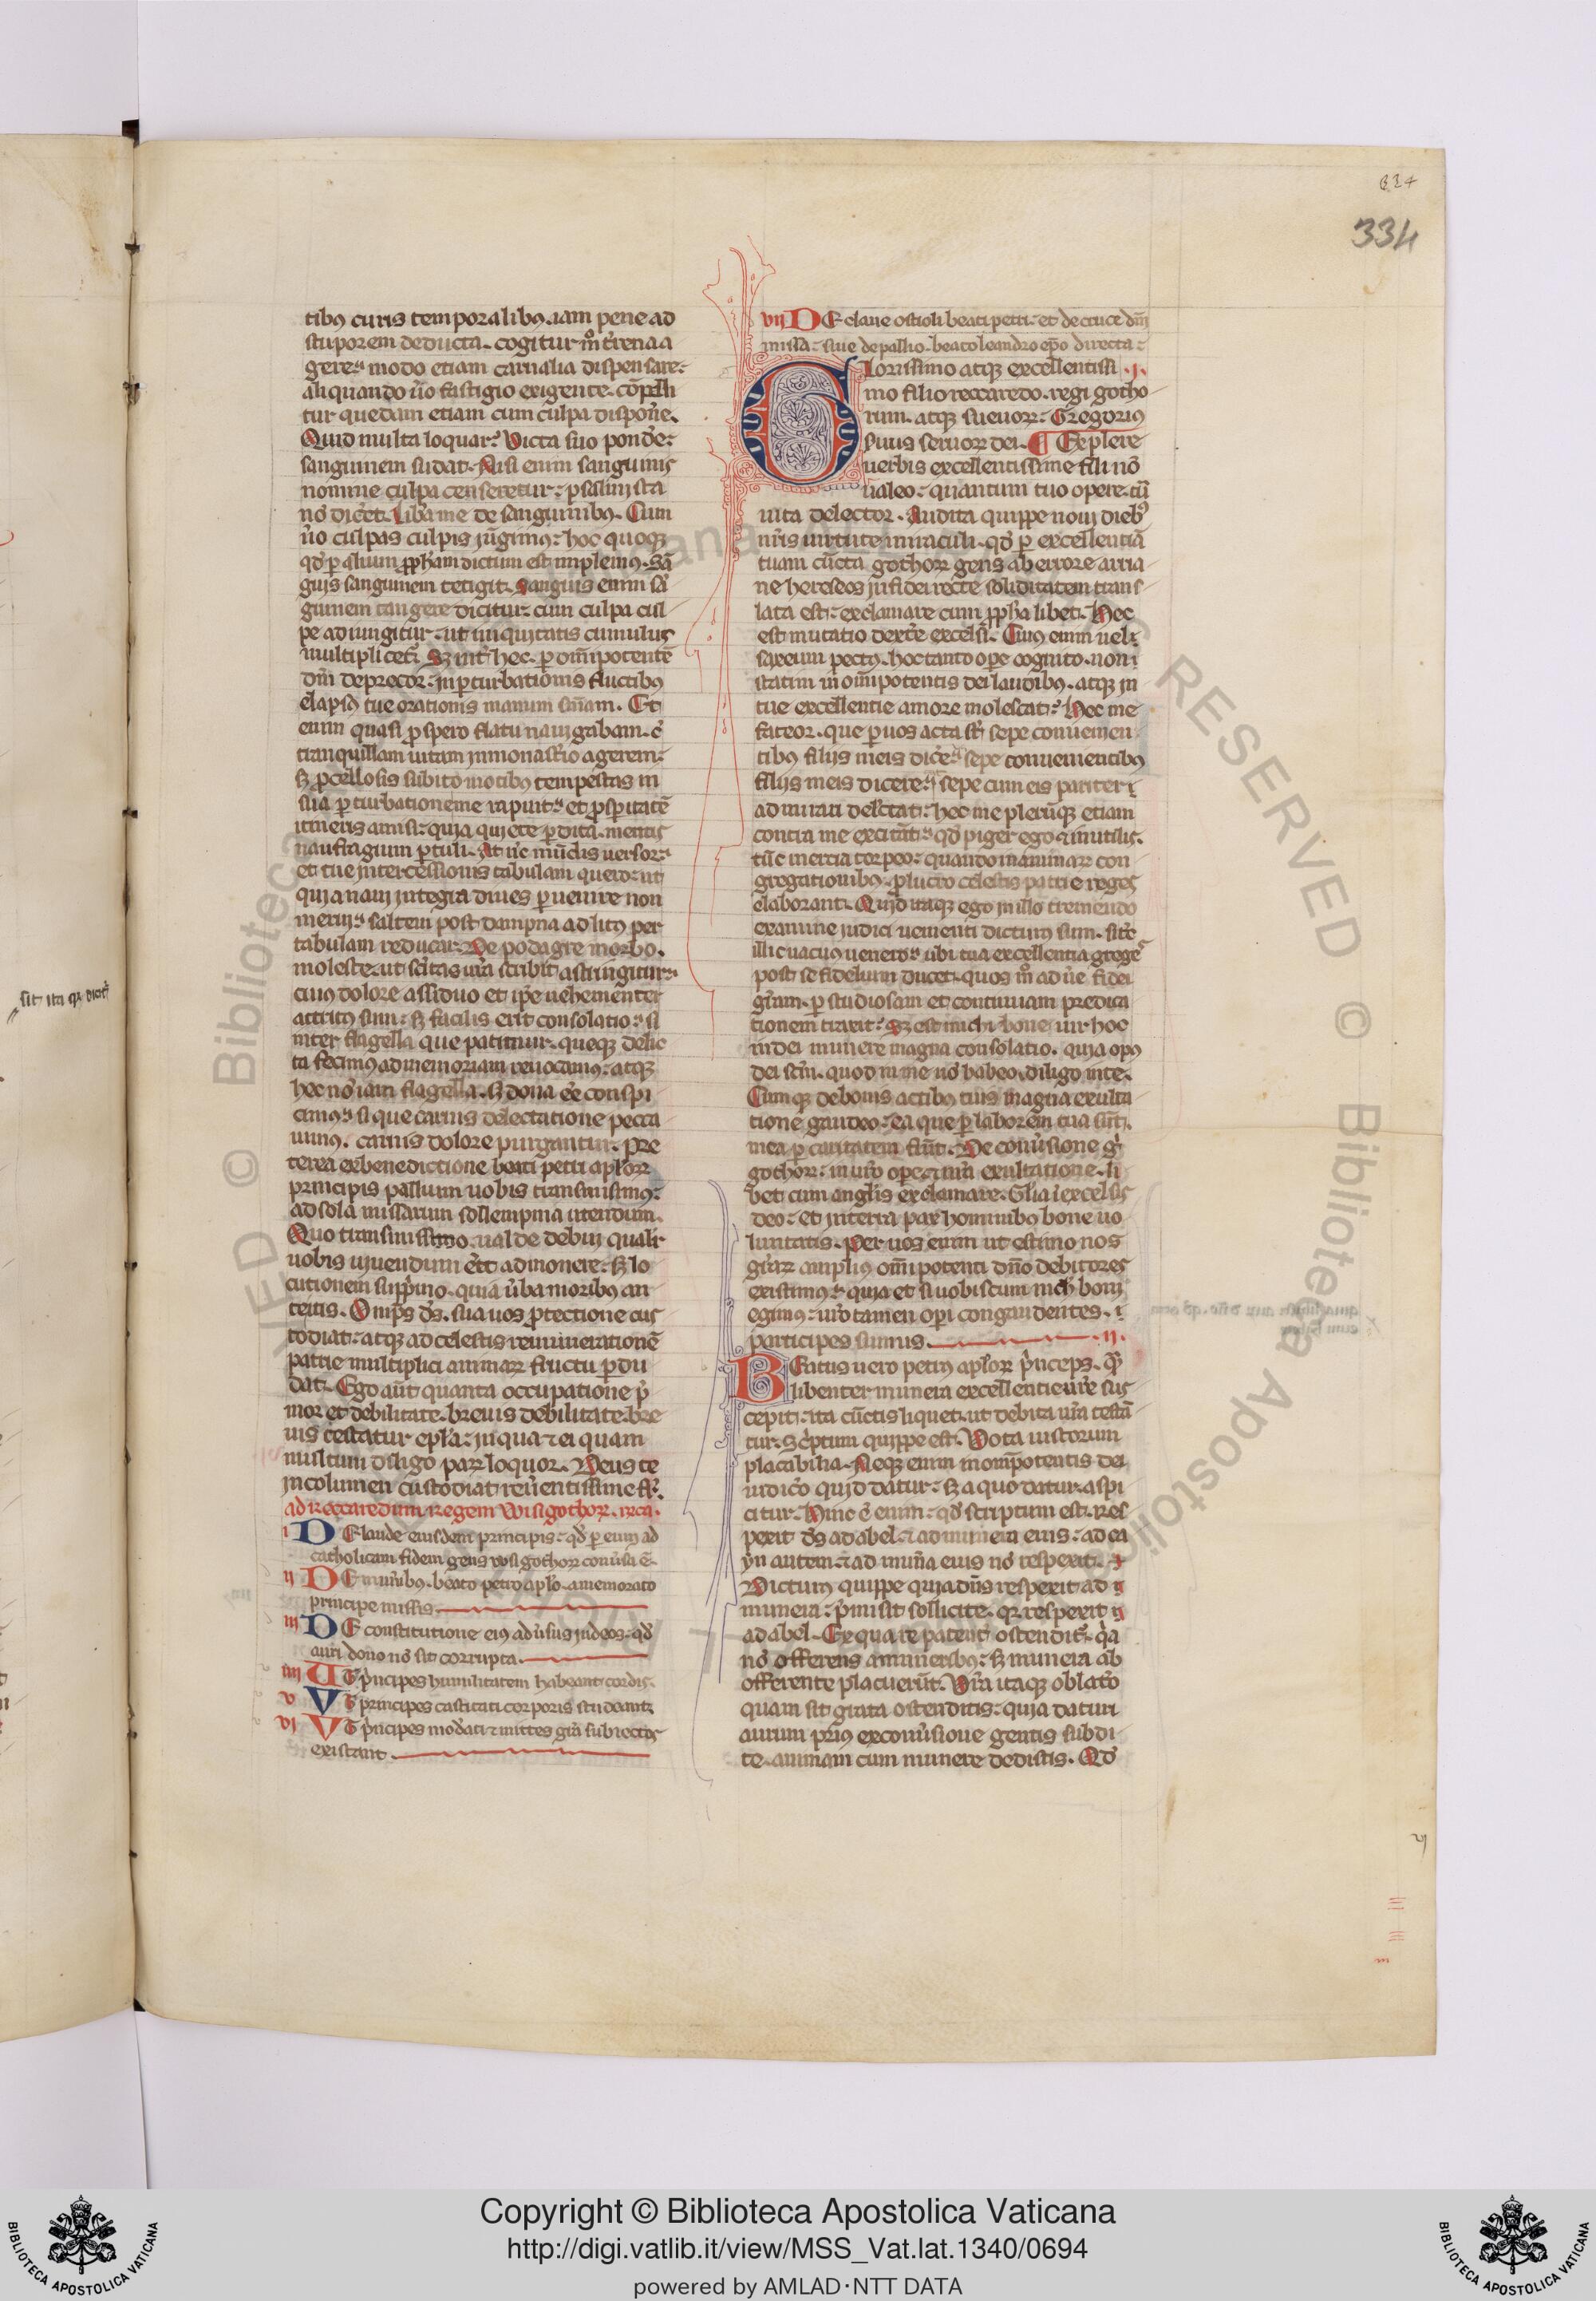 334
334
tibꝰ curis temporalibꝰ. iam pene ad
stuporem deducta. cogitur m̊ t̾rena a
gere. modo etiam carnalia dispensare.
aliquando u̾o fastigio exigente. cōpelli
tur quedam etiam cum culpa dispon̾e.
Quid multa loquar. Victa suo pond̾e.
sanguinem sudat. Nisi enim sanguinis
nomine culpa censeretur. psalmista
nō dic̾et. Lib̾a me de sanguinibꝰ. Cum
u̾o culpas culpis iūgimꝰ. hoc quoqꝫ
qd̾ ꝑ alium ꝓph̾am dictum est implemꝰ. Sā
guis sanguinem tetigit. Sanguis enim sā
guinem tangere dicitur. cum culpa cul
pe adiungitur. ut iniquitatis cumulus
multiplicet᷑. Sꝫ int̾ hec. ꝑ om̄ipotentē
dm̄ deprecor. in ꝑturbationis fluctibꝰ
elapsū tue orationis manum
enim quasi ꝓspero flatu nauigabam. c̄
tranquillam uitam in monast̾io agerem.
sꝫ ꝓcellosis subito motibꝰ tempestas in
sua ꝑturbatione me rapuit. et ꝓsꝑitatē
itineris amisi. quia quiete ꝑdita. mentis
naufragium ꝑtuli. At nc̄ in ūdis uersor.
et tue intercessionis tabulam quero. ut
qui a naui integra diues ꝑuenire non
merui. saltem post dampna ad litꝰ per
tabulam reducar. De podagre morbo.
moleste. ut sc̄itas ur̄a scribit astringitur.
cuiꝰ dolore assiduo et ip̄e uehementer
attritꝰ sum. sꝫ facilis erit consolatio. si
inter flagella que patimur. queqꝫ delic
ta fecimꝰ ad memoriam reuocamꝰ. atqꝫ
hec nō iam flagella. sꝫ dona ee̾ conspi
cimꝰ. si que carnis delectatione pecca
uimꝰ. carnis dolore purgantur. Pre
terea ex benedictione beati petri aplōꝝ
principis pallium uobis transmisimꝰ.
ad sola missarum sollempnia utendum.
Quo transmisso. ualde debui qualit̾
uobis uiuendum ēēt admonere. sꝫ lo
cutionem supp̾mo. quia u̾ba moribꝰ an
teitis. Omīps ds̄. sua uos ꝓtectione cus
todiat. atqꝫ ad celestis remunerationē
patrie multiplici animaꝝ fructu ꝑdu
cat. Ego aūt quanta occupatione p̾
mor et debilitate. breuis debilitate. bre
uis testatur epl̾a. in qua ⁊ ei quem
multum diligo pax loquor. Deus te
incolumen custodiat reu̾entissime fr̄.
ad Reccaredum regem Wisigothoꝝ.
i DE laude eiusdem principis. qd̾ ꝑ eum ad
catholicam fidem gens wisigothoꝝ conu̾sa ē.
ii DE mun̾ibꝰ. beato petro aplō. a memorato
principe missis.
iii DE constitutione eiꝰ adu̾sus iudeos. qd̾
auri dono nō sit corrupta.
iiii UT p̾ncipes humilitatem habeant cordis.
v VT principes castitati corporis studeant.
vi VT p̾ncipes mod̾ati ⁊ mittes gr̄a subiectos
existant.
vii DE claue ostioli beati petri. et de cruce dm̄
missa. siue de pallio. beato leandro ep̄o directa.
GLorissimo atqꝫ excellentissi .i.
mo filio reccaredo. regi gotho
rum. atqꝫ sueuoꝝ. Gregorius
suus seruoꝝ dei. ¶ Explere
uerbis excellentissime fili nō
ualeo. quantum tuo opere. tū
uita delector. Audita quippe noui diebꝰ
nr̄is uirtute miraculi. qd̾ ꝑ excellentiā
tuam cūcta gothoꝝ gens ab errore arria
ne hereseos in fidei recte soliditatem trans
lata est. exclamare cum ꝓph̾a libet. Hec
est mutatio dext̾e excelsi. Cuiꝰ enim uel
saxeum pectꝰ. hoc tanto oꝑe cognito. non
statim in om̄ipotentis dei laudibꝰ. atqꝫ in
tue excellentie amore molescat. Hec me
fateor. que ꝑ uos acta st̄ sepe conuenien
tibꝰ filiis meis dic̾e. sepe conuenientibꝰ
filiis meis dicere. sepe cum eis pariter
admirari delectat. hec me plerūqꝫ etiam
contra me excitāt. qd̾ piger ego ⁊ inutilis.
tūc inertia torpeo. quando in animaꝝ con
gregationibꝰ. ꝓ lucro celestis patrie reges
elaborant. Quid itaqꝫ ego in illo tremendo
examine iudici uenienti dicturꝰ sum. si t̾c
illic uacuus uenero. ubi tua excellentia greges
post se fidelium ducet. quos m̊ ad ue̾ fidei
gr̄am. ꝑ studiosam et continuam predica
tionem traxit. Sꝫ est michi bone uir hoc
in dei munere magna consolatio. quia opꝰ
dei sc̄m. quod in me nō habeo. diligo in te.
Cumqꝫ de bonis actibꝰ tuis magna exulta
tione gaudeo. ea que ꝑ laborem tua sūt.
mea ꝑ caritatem fiūt. De conu̾sione g̾
gothoꝝ. in ur̄o oꝑe. ⁊ nr̄a exultatione. li
bet cum anglis exclamare. Gl̾ia ī excelsis
deo. et in terra pax hominibꝰ bone uo
luntatis. Per uos enim ut estimo nos
gr̄aꝝ ampliꝰ om̄ipotenti dn̄o debitores
existimꝰ. quia et si uobiscum nich̾ boni
egimꝰ. ur̄o tamen oꝑi congaudentes.
participes sumus. .ii.
BEatus uero petrꝰ aplōꝝ p̾nceps. qꝫ
libenter munera excellentie ur̄e sus
cepit. ita cūctis liquet. ut debita ur̄a testā
tur. Sc̾ptum quippe est. Vota iustorum
placabilia. Neqꝫ enim in om̄potentis dei
iudic̾o quid datur. sꝫ a quo datur. aspi
citur. Hinc ē enim. qd̾ scriptum est. Res
pexit ds̄ ad abel. ⁊ ad munera eius. ad ca
yn autem. ⁊ ad mun̾a eius nō respexit.
Dicturꝰ quippe quia dn̄s respexit ad
munera. p̾misit sollicite. qꝫ respexit
ad abel. Ex qua re patent̾ ostendit᷑. q̾a
nō offerens a muneribꝰ. sꝫ munera ab
offerente placuerūt. Ur̄a itaqꝫ oblat̾o
quam sit grata ostenditis. quia daturi
aurum pr̾iꝰ ex conu̾sione gentis subdi
te. animam cum munere dedistis. Qd̾
sit ita qꝫ dicit᷑
Copyright © Biblioteca Apostolica Vaticana
http://digi.vatlib.it/view/MSS_Vat.lat.1340/0694
powered by AMLAD·NTT DATA
BIBLIOTECA APOSTOLICA VATICANA
BIBLIOTECA APOSTOLICA VATICANA